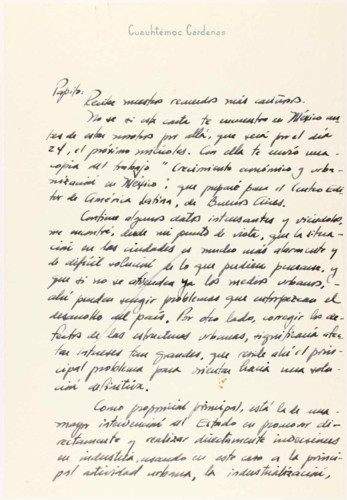 Cuauhtémoc Cárdenas
Papito:
Recibe nuestros recuerdos más cariñosos.
No se si esta carta te encuentre en México an-
tes de estar nosotros por allá, que será por el día
24, el próximo miércoles. Con ella te envío una
copia del trabajo "Crecimiento económico y urba-
nización en México", que preparé para el Centro Edi-
tor de América Latina, de Buenos Aires.
Contiene algunos datos interesantes y viéndolo,
me mostró, desde mi punto de vista, que la situa-
ción en las ciudades es mucho más alarmante y
de difícil solución de lo que pudiera pensarse, y
que si no se atienden ya los medios urbanos,
ahí pueden surgir problemas que entorpezcan el
desarrollo del país. Por otro lado, corregir los de-
fectos de las estructuras urbanas, significaría afec-
tar intereses tan grandes, que reside ahí el prin-
cipal problema para orientar hacia una solu-
ción definitiva.
Como proposición principal, está la de una
mayor intervención del Estado en promover di-
rectamente y realizar directamente inversiones
en industria, usando en este caso a la princi-
pal actividad urbana, la industrialización,